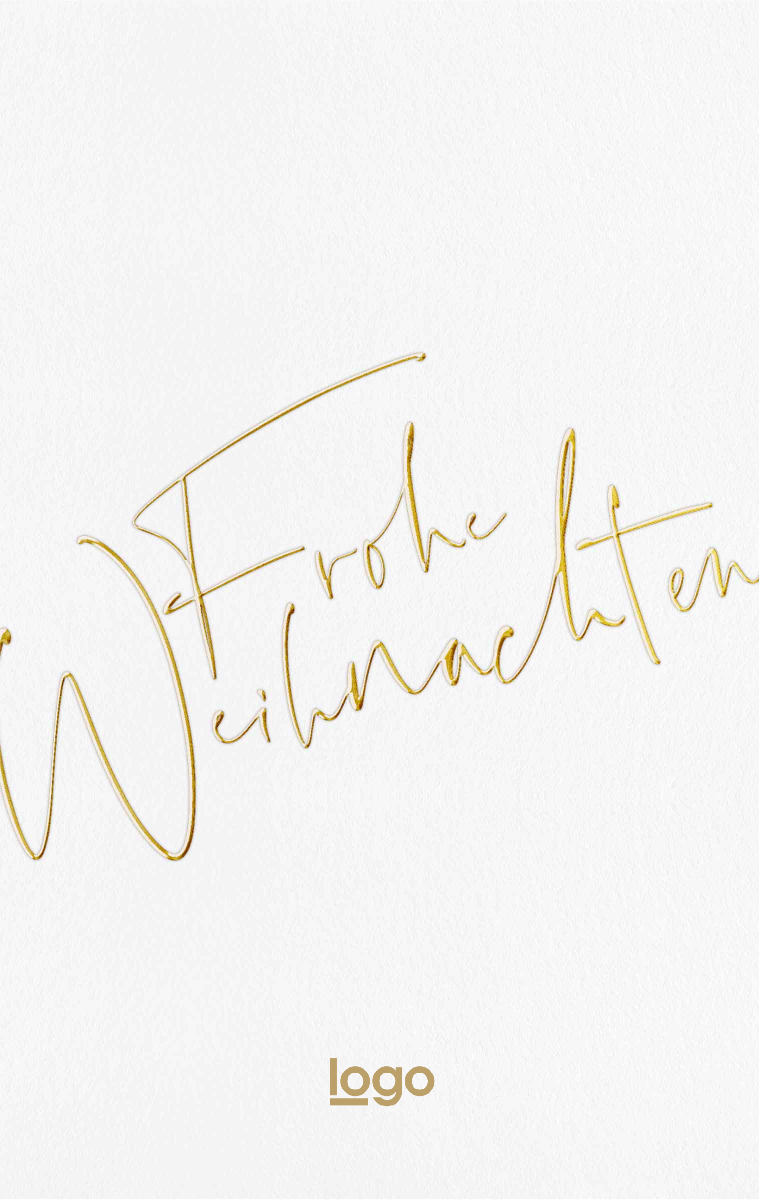 Frohe
Weihnachten
logo